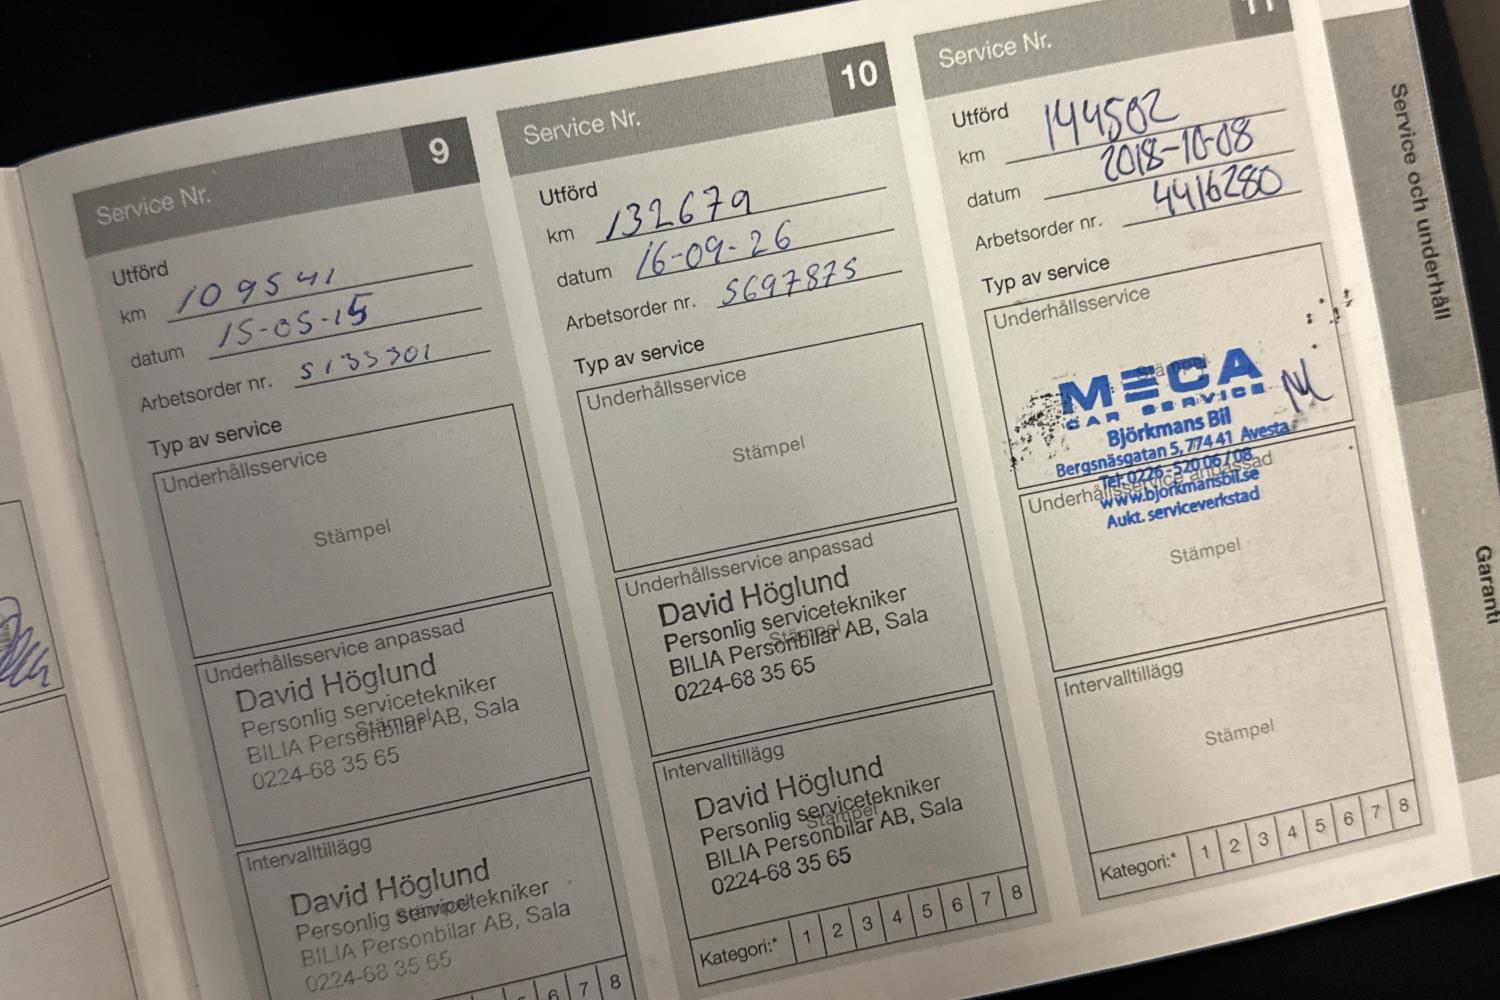 Service Nr. 9
Utförd
km 109541
datum 15-05-15
Arbetsorder nr. 5133301
Typ av service
Underhållsservice
Stämpel
Underhållsservice anpassad
Stämpel
David Höglund
Personlig servicetekniker
BILIA Personbilar AB, Sala
0224-68 35 65
Intervalltillägg
Stämpel
David Höglund
Personlig servicetekniker
BILIA Personbilar AB, Sala
0224-68 35 65
6 7 8
Service Nr. 10
Utförd
km 132679
datum 16-09-26
Arbetsorder nr. 5697875
Typ av service
Underhållsservice
Stämpel
Underhållsservice anpassad
Stämpel
David Höglund
Personlig servicetekniker
BILIA Personbilar AB, Sala
0224-68 35 65
Intervalltillägg
Stämpel
David Höglund
Personlig servicetekniker
BILIA Personbilar AB, Sala
0224-68 35 65
Kategori:* 1 2 3 4 5 6 7 8
Service Nr. 11
Utförd
km 144502
datum 2018-10-08
Arbetsorder nr. 4416280
Typ av service
Underhållsservice
Stämpel
MECA
CAR SERVICE
Björkmans Bil
Bergsnäsgatan 5, 774 41 Avesta
Tel: 0226-520 06 / 08
www.bjorkmansbil.se
Aukt. serviceverkstad
Underhållsservice anpassad
Stämpel
Intervalltillägg
Stämpel
Kategori:* 1 2 3 4 5 6 7 8
Service och underhåll
Garanti